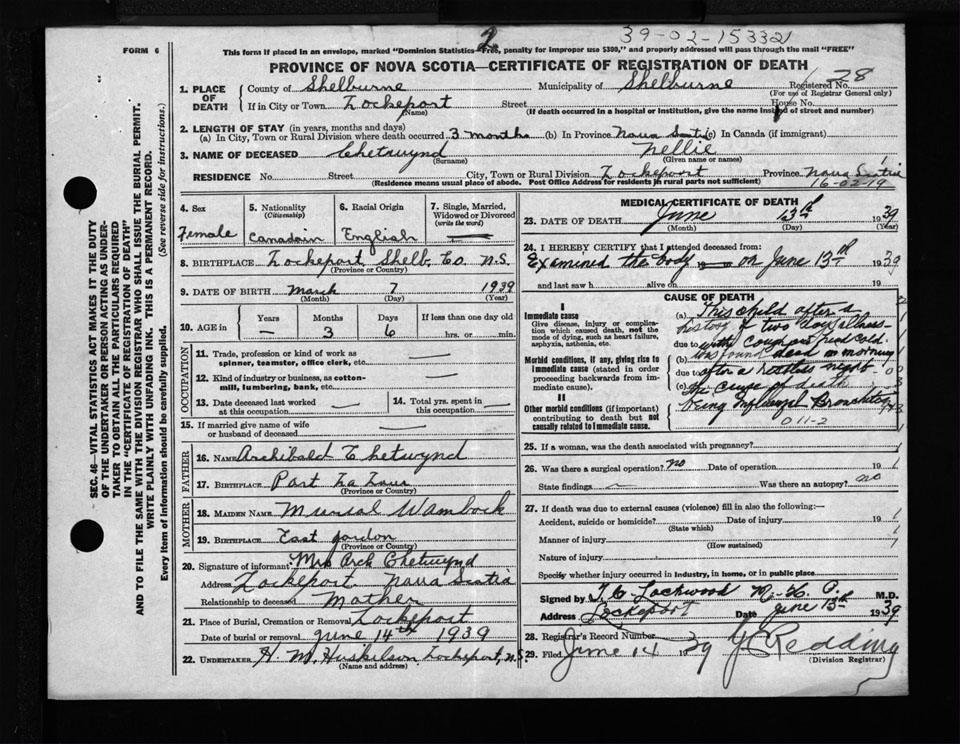 39-02-15332
FORM 6
2
This form if placed in an envelope, marked "Dominion Statistics—Free, penalty for improper use $300," and properly addressed will pass through the mail "FREE"
PROVINCE OF NOVA SCOTIA—CERTIFICATE OF REGISTRATION OF DEATH
1. PLACE OF DEATH
County of Shelburne Municipality of Shelburne Registered No. 28
(For use of Registrar General only)
If in City or Town Lockeport Street House No.
(Name) (If death occurred in a hospital or institution, give the name instead of street and number)
2. LENGTH OF STAY (in years, months and days)
(a) In City, Town or Rural Division where death occurred 3 months (b) In Province Nova Scotia (c) In Canada (if immigrant)
3. NAME OF DECEASED Chetwynd Nellie
(Surname) (Given name or names)
RESIDENCE No. Street City, Town or Rural Division Lockeport Province Nova Scotia
(Residence means usual place of abode. Post Office Address for residents in rural parts not sufficient) 16-02-19
4. Sex Female
5. Nationality (Citizenship) Canadain
6. Racial Origin English
7. Single, Married, Widowed or Divorced (write the word) —
8. BIRTHPLACE Lockeport Shelb. Co. N.S.
(Province or Country)
9. DATE OF BIRTH March 7 1939
(Month) (Day) (Year)
10. AGE in Years Months Days If less than one day old
— 3 6 hrs. or min.
OCCUPATION
11. Trade, profession or kind of work as spinner, teamster, office clerk, etc. —
12. Kind of industry or business, as cotton-mill, lumbering, bank, etc. —
13. Date deceased last worked at this occupation —
14. Total yrs. spent in this occupation —
15. If married give name of wife or husband of deceased —
FATHER
16. NAME Archibald Chetwynd
17. BIRTHPLACE Port La Tour
(Province or Country)
MOTHER
18. MAIDEN NAME Murial Wambock
19. BIRTHPLACE East Jordon
(Province or Country)
20. Signature of informant Mrs Arch Chetwynd
Address Lockeport Nova Scotia
Relationship to deceased Mother
21. Place of Burial, Cremation or Removal Lockeport
Date of burial or removal June 14th 1939
22. UNDERTAKER H. M. Huskilson Lockeport, N.S.
(Name and address)
MEDICAL CERTIFICATE OF DEATH
23. DATE OF DEATH June 13th 1939
(Month) (Day) (Year)
24. I HEREBY CERTIFY that I attended deceased from:
Examined the body on June 13th 1939
and last saw h alive on 19
CAUSE OF DEATH
I
Immediate cause
Give disease, injury or complication which caused death, not the mode of dying, such as heart failure, asphyxia, asthenia, etc.
Morbid conditions, if any, giving rise to immediate cause (stated in order proceeding backwards from immediate cause).
II
Other morbid conditions (if important) contributing to death but not causally related to immediate cause.
(a) This child after a
history of two day illness
due to with cough and head cold
(b) was found dead in morning
due to after a restless night.
(c) The cause of death
being
011-2
25. If a woman, was the death associated with pregnancy?
26. Was there a surgical operation? no Date of operation 19
State findings — Was there an autopsy? no
27. If death was due to external causes (violence) fill in also the following:—
Accident, suicide or homicide? Date of injury 19
(State which)
Manner of injury
(How sustained)
Nature of injury
Specify whether injury occurred in industry, in home, or in public place
Signed by Lockwood M.D.
Address Lockeport Date June 13th 1939
28. Registrar's Record Number
29. Filed June 14 1939 Redding
(Division Registrar)
SEC. 46—VITAL STATISTICS ACT MAKES IT THE DUTY
OF THE UNDERTAKER OR PERSON ACTING AS UNDER-
TAKER TO OBTAIN ALL THE PARTICULARS REQUIRED
IN THE "CERTIFICATE OF REGISTRATION OF DEATH"
AND TO FILE THE SAME WITH THE DIVISION REGISTRAR WHO SHALL ISSUE THE BURIAL PERMIT.
WRITE PLAINLY WITH UNFADING INK. THIS IS A PERMANENT RECORD.
Every item of information should be carefully supplied. (See reverse side for instructions.)